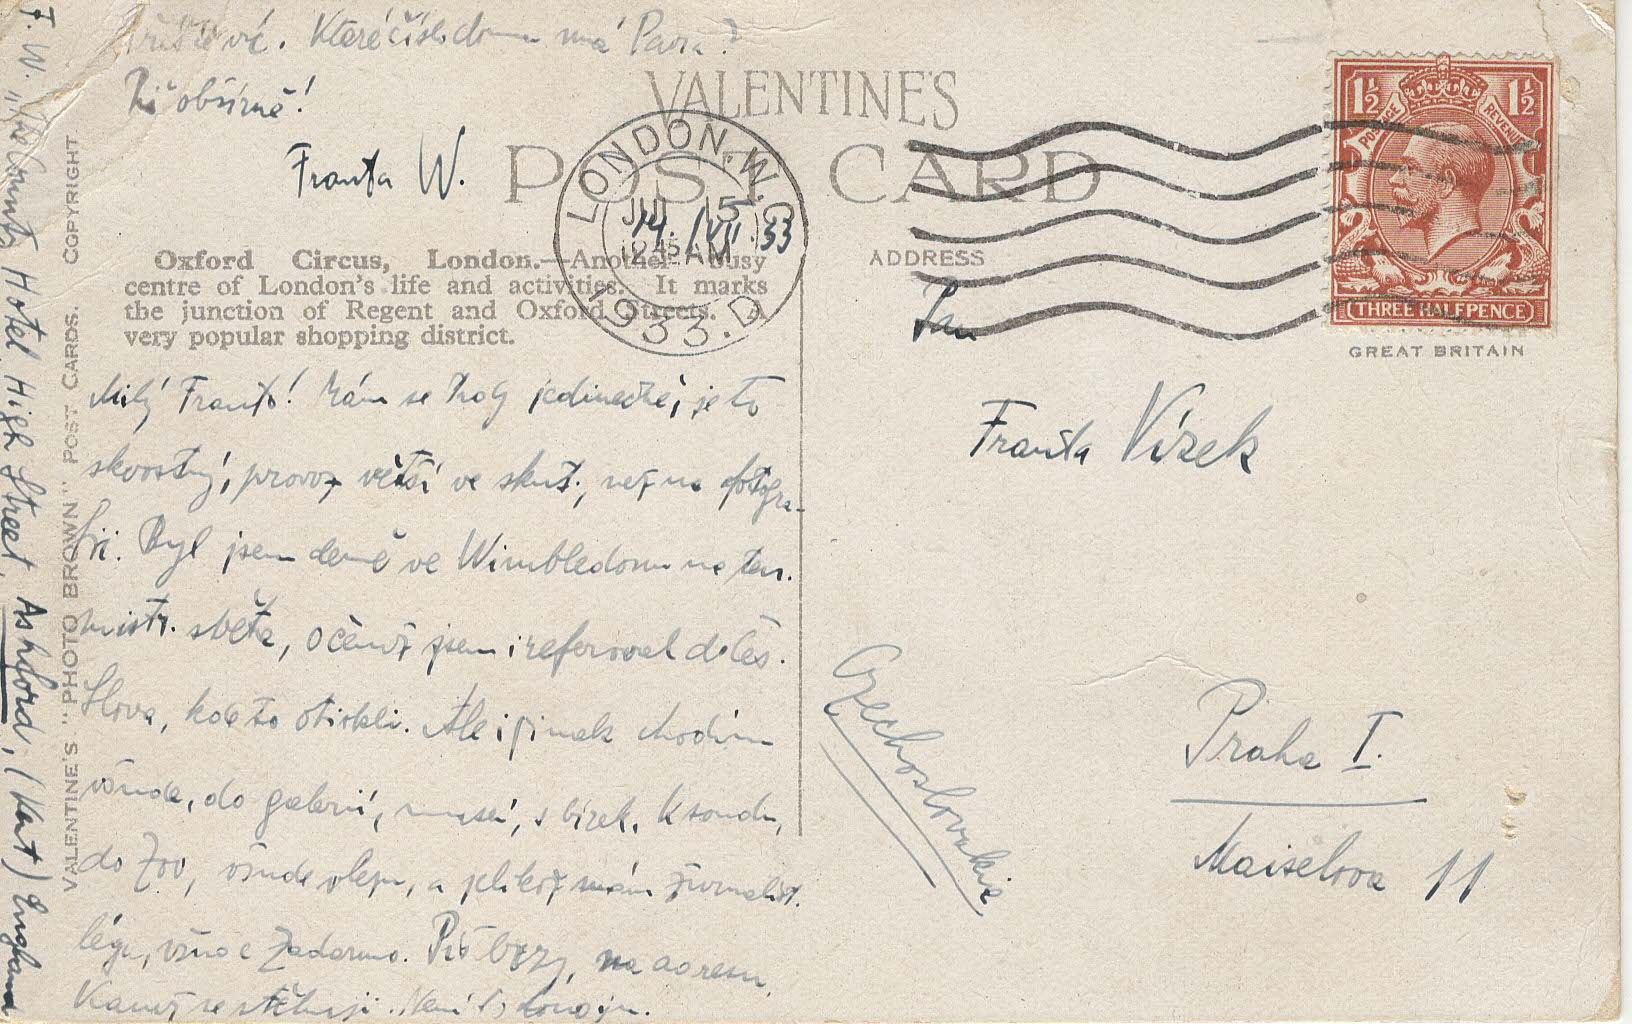 Které číslo domu má Pavla?
Piš obšírně!
Franta W.
VALENTINE'S
POST CARD
LONDON. W.C.
JUL 15
12 15 AM
1933. D
14. VII. 33
Oxford Circus, London.—Another busy
centre of London's life and activities. It marks
the junction of Regent and Oxford Streets. A
very popular shopping district.
Milý Franto! Mám se tady jedinečně, je to
skvostný, provoz větší ve skut., než na fotogra-
fii. Byl jsem denně ve Wimbledonu na ten.
mistr. světa, o čemž jsem i referoval do Čes.
Slova, kde to otiskli. Ale i jinak chodím
všude, do galerií, museí, sbírek,
do Zoo, všude, a jelikož mám žurnalist.
légu, všude zadarmo. Piš brzy, na adresu,
kamž se stěhuji. Není to
F. W. County Hotel, High Street, Ashford, (Kent) England
VALENTINE'S "PHOTO BROWN" POST CARDS. COPYRIGHT
1½ 1½
POSTAGE REVENUE
THREE HALFPENCE
GREAT BRITAIN
ADDRESS
Pan
Franta Vízek
Praha I.
Maiselova 11
Czechoslovakia